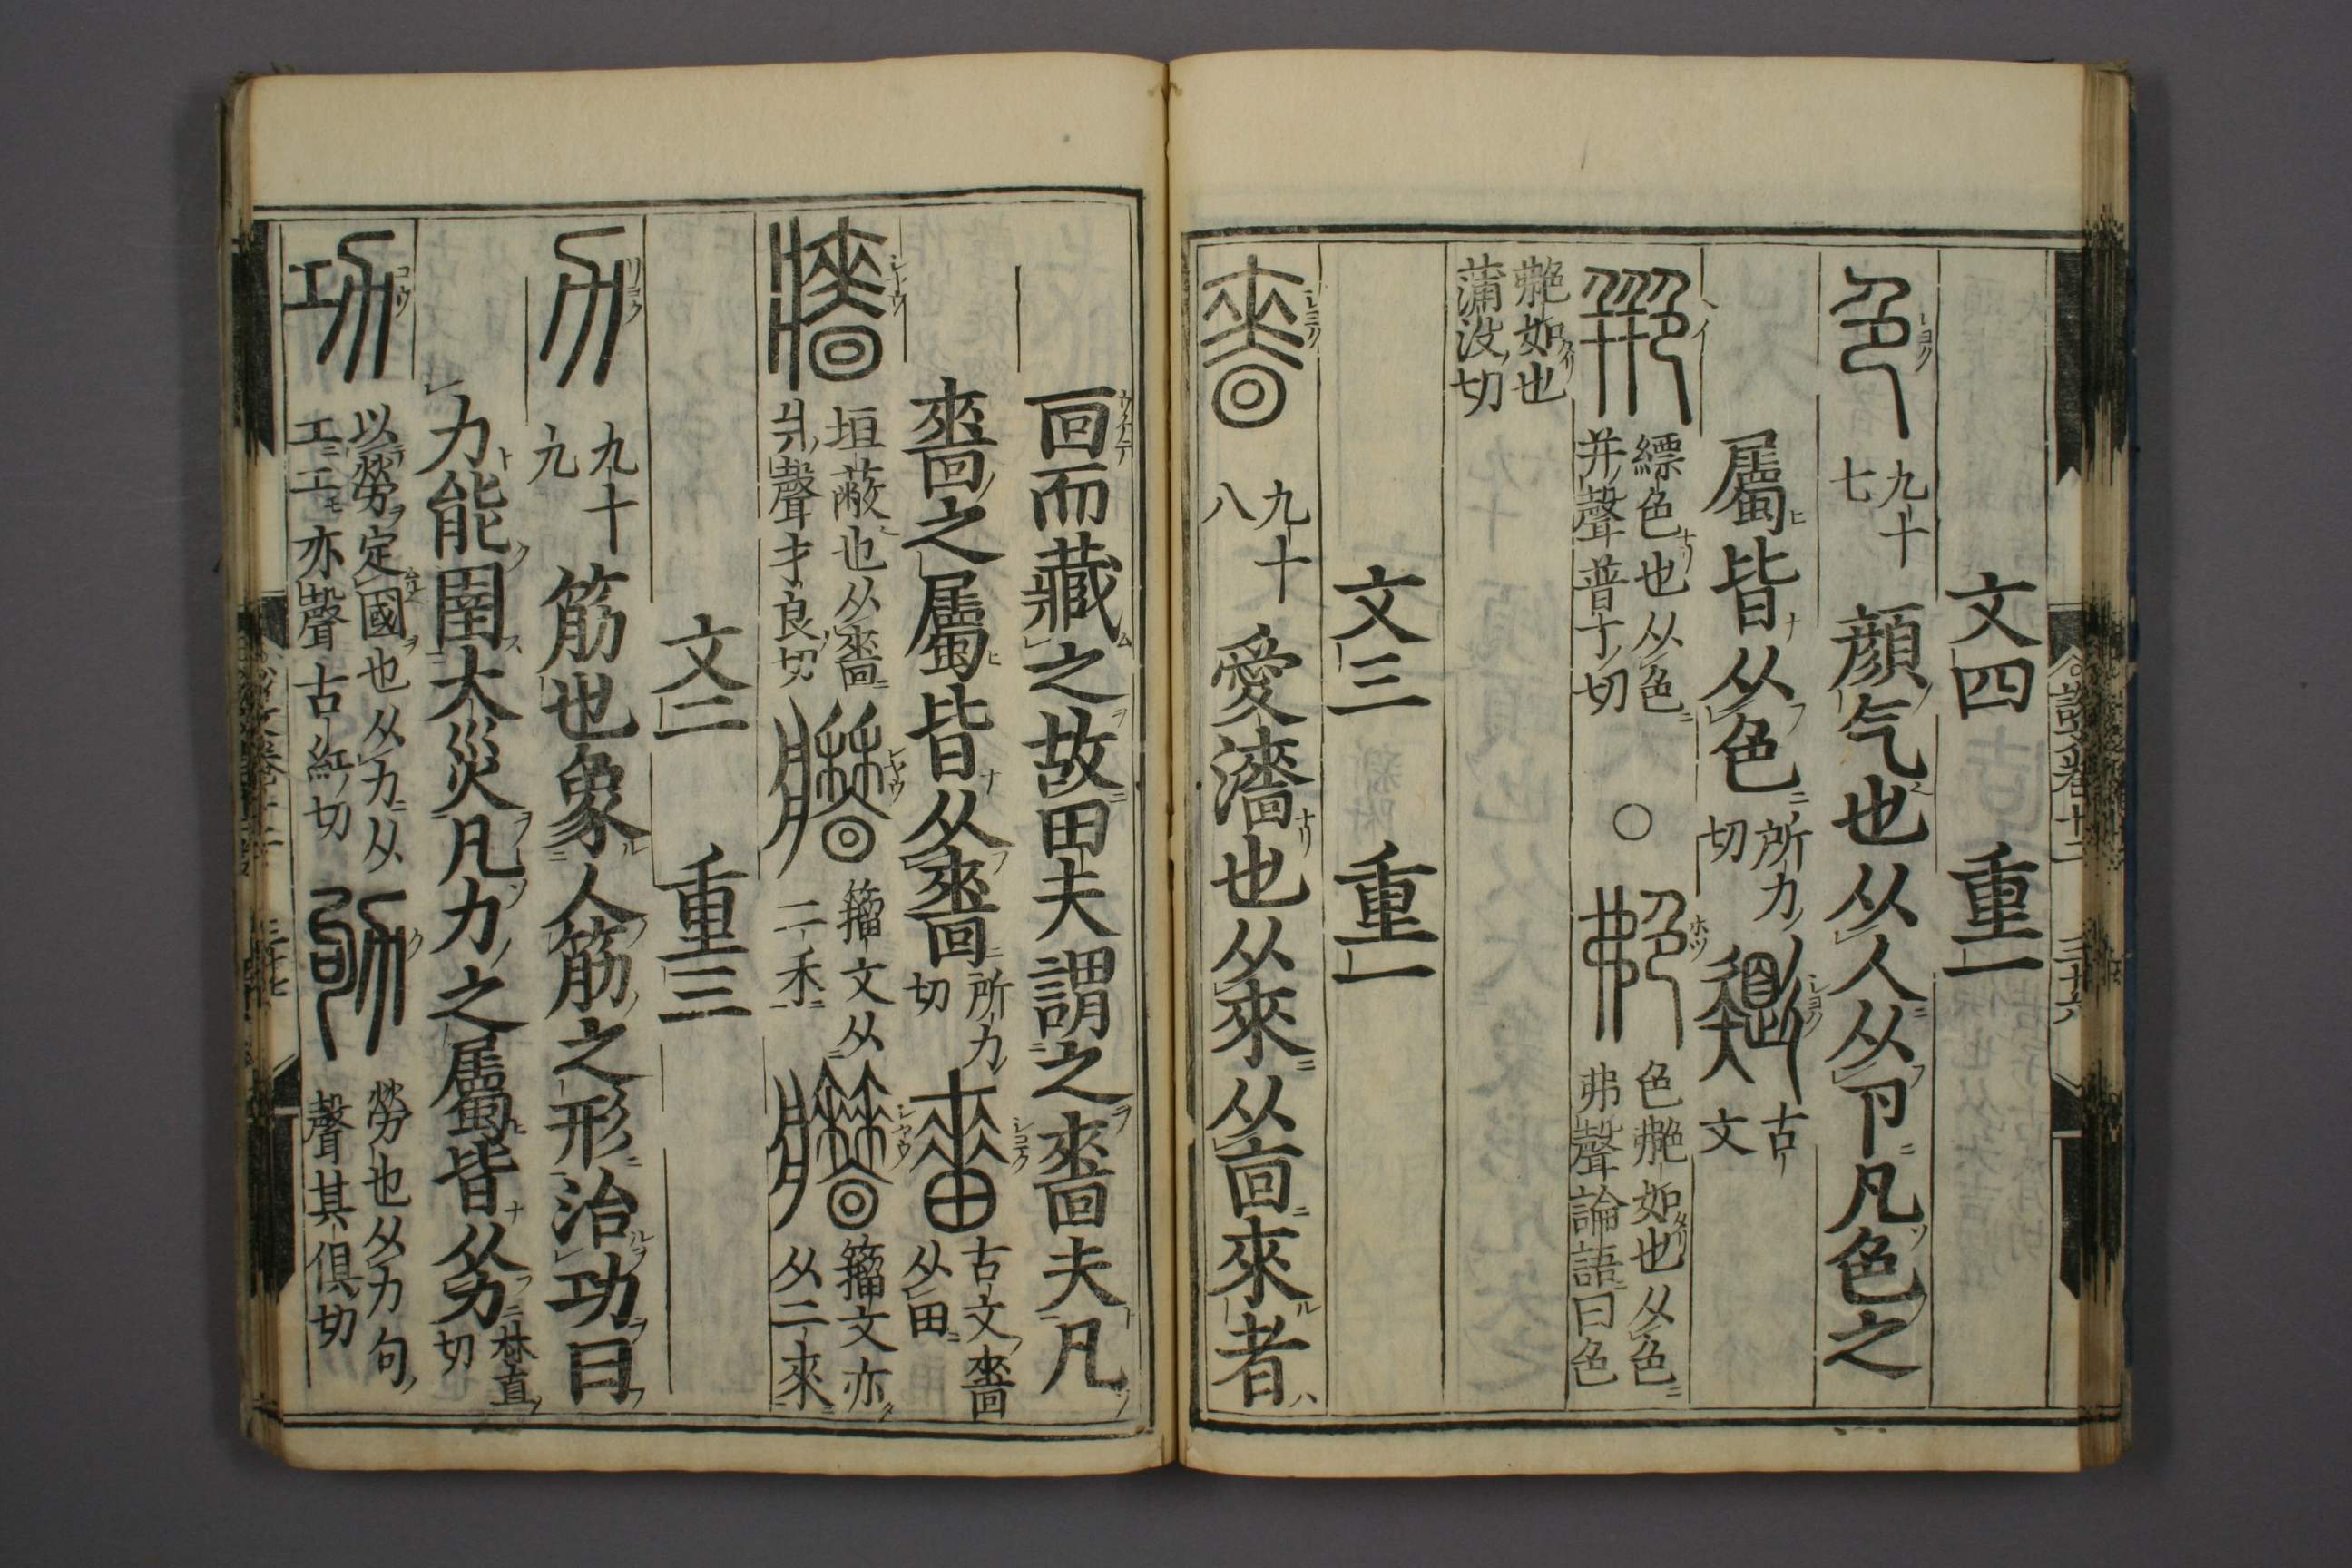 説文卷十二 三十六
文四 重一
色 九十七 顔气也从人从卩凡色之
屬皆从色 所力切 古文
艵 縹色也从色并聲普丁切 ○ 艴 色艴如也从色弗聲論語曰色
艴如也蒲没切
文三 重一
嗇 九十八 愛濇也从來从㐭來者
回而藏之故田夫謂之嗇夫凡
嗇之屬皆从嗇 所力切 古文嗇从田
牆 垣蔽也从嗇爿聲才良切 籀文从二禾 籀文亦从二來
文二 重三
力 九十九 筋也象人筋之形治功曰
力能圉大災凡力之屬皆从力 林直切
功 以勞定國也从力从工工亦聲古紅切 劬 勞也从力句聲其俱切